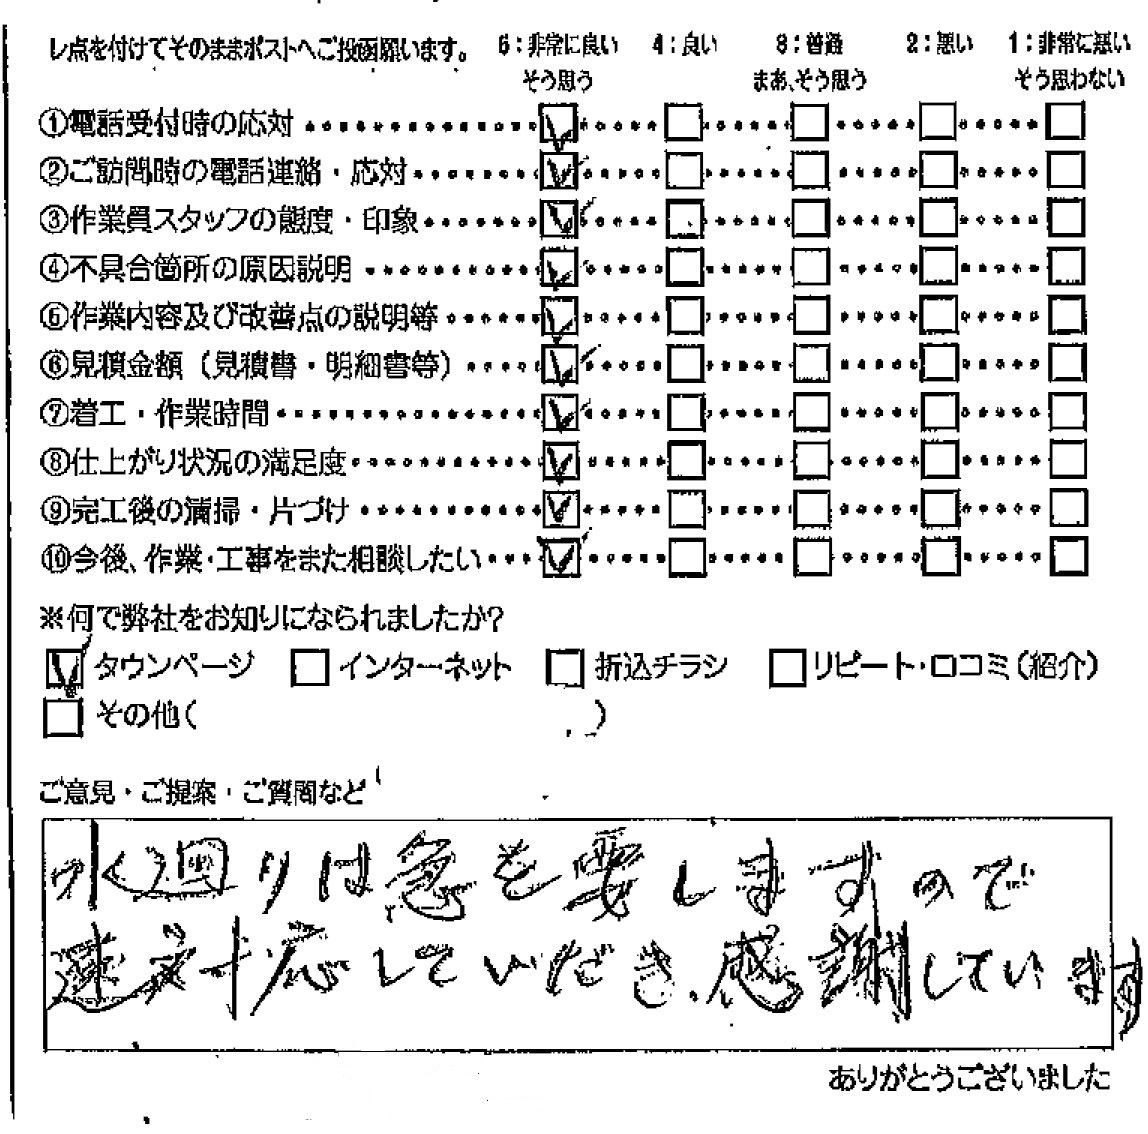 レ点を付けてそのままポストへご投函願います。 5:非常に良い 4:良い 3:普通 2:悪い 1:非常に悪い
そう思う まあ、そう思う そう思わない
①電話受付時の応対
②ご訪問時の電話連絡・応対
③作業員スタッフの態度・印象
④不具合箇所の原因説明
⑤作業内容及び改善点の説明等
⑥見積金額(見積書・明細書等)
⑦着工・作業時間
⑧仕上がり状況の満足度
⑨完工後の清掃・片づけ
⑩今後、作業・工事をまた相談したい
※何で弊社をお知りになられましたか?
タウンページ インターネット 折込チラシ リピート・口コミ(紹介)
その他( )
ご意見・ご提案・ご質問など
水廻りは急を要しますので
速対応していただき、感謝しています
ありがとうございました